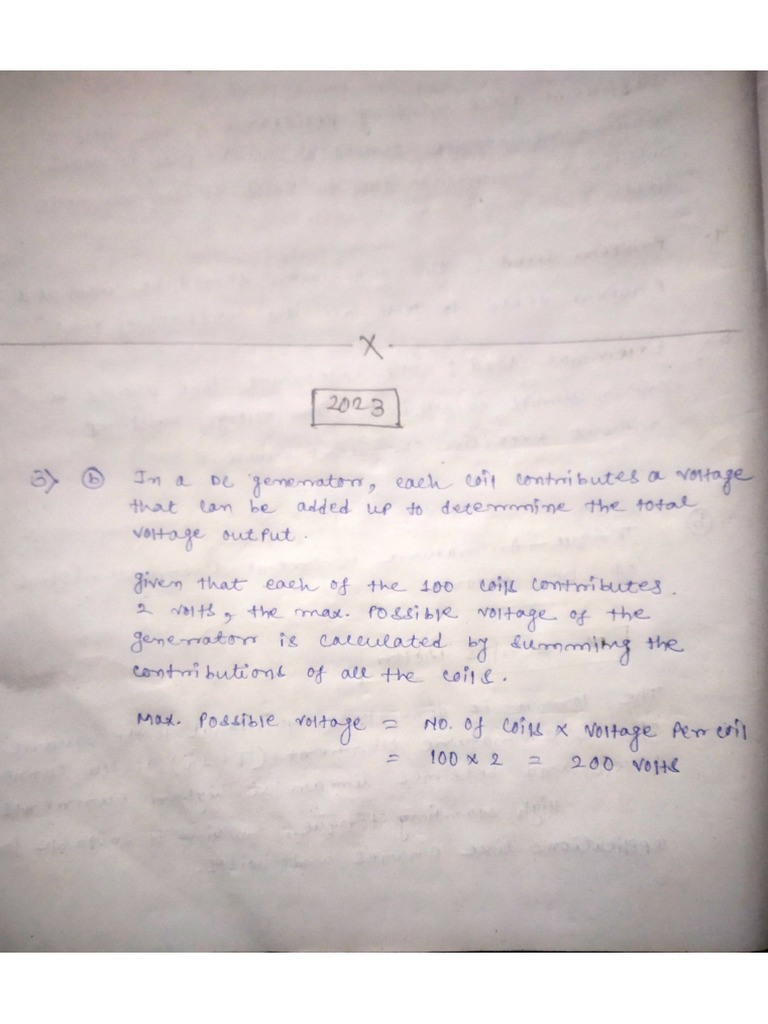 X
2023
3) (b) In a DC generator, each coil contributes a voltage
that can be added up to determine the total
voltage output.
given that each of the 100 coils contributes.
2 volts, the max. possible voltage of the
generator is calculated by summing the
contributions of all the coils.
Max. Possible voltage = No. of coils x voltage per coil
= 100 x 2 = 200 volts